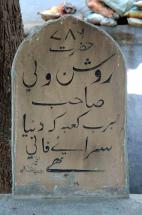 ۷۸۶
حضرت
روشن ولی
صاحب
رب کعبہ کہ دنیا
سرائے فانی
ہے